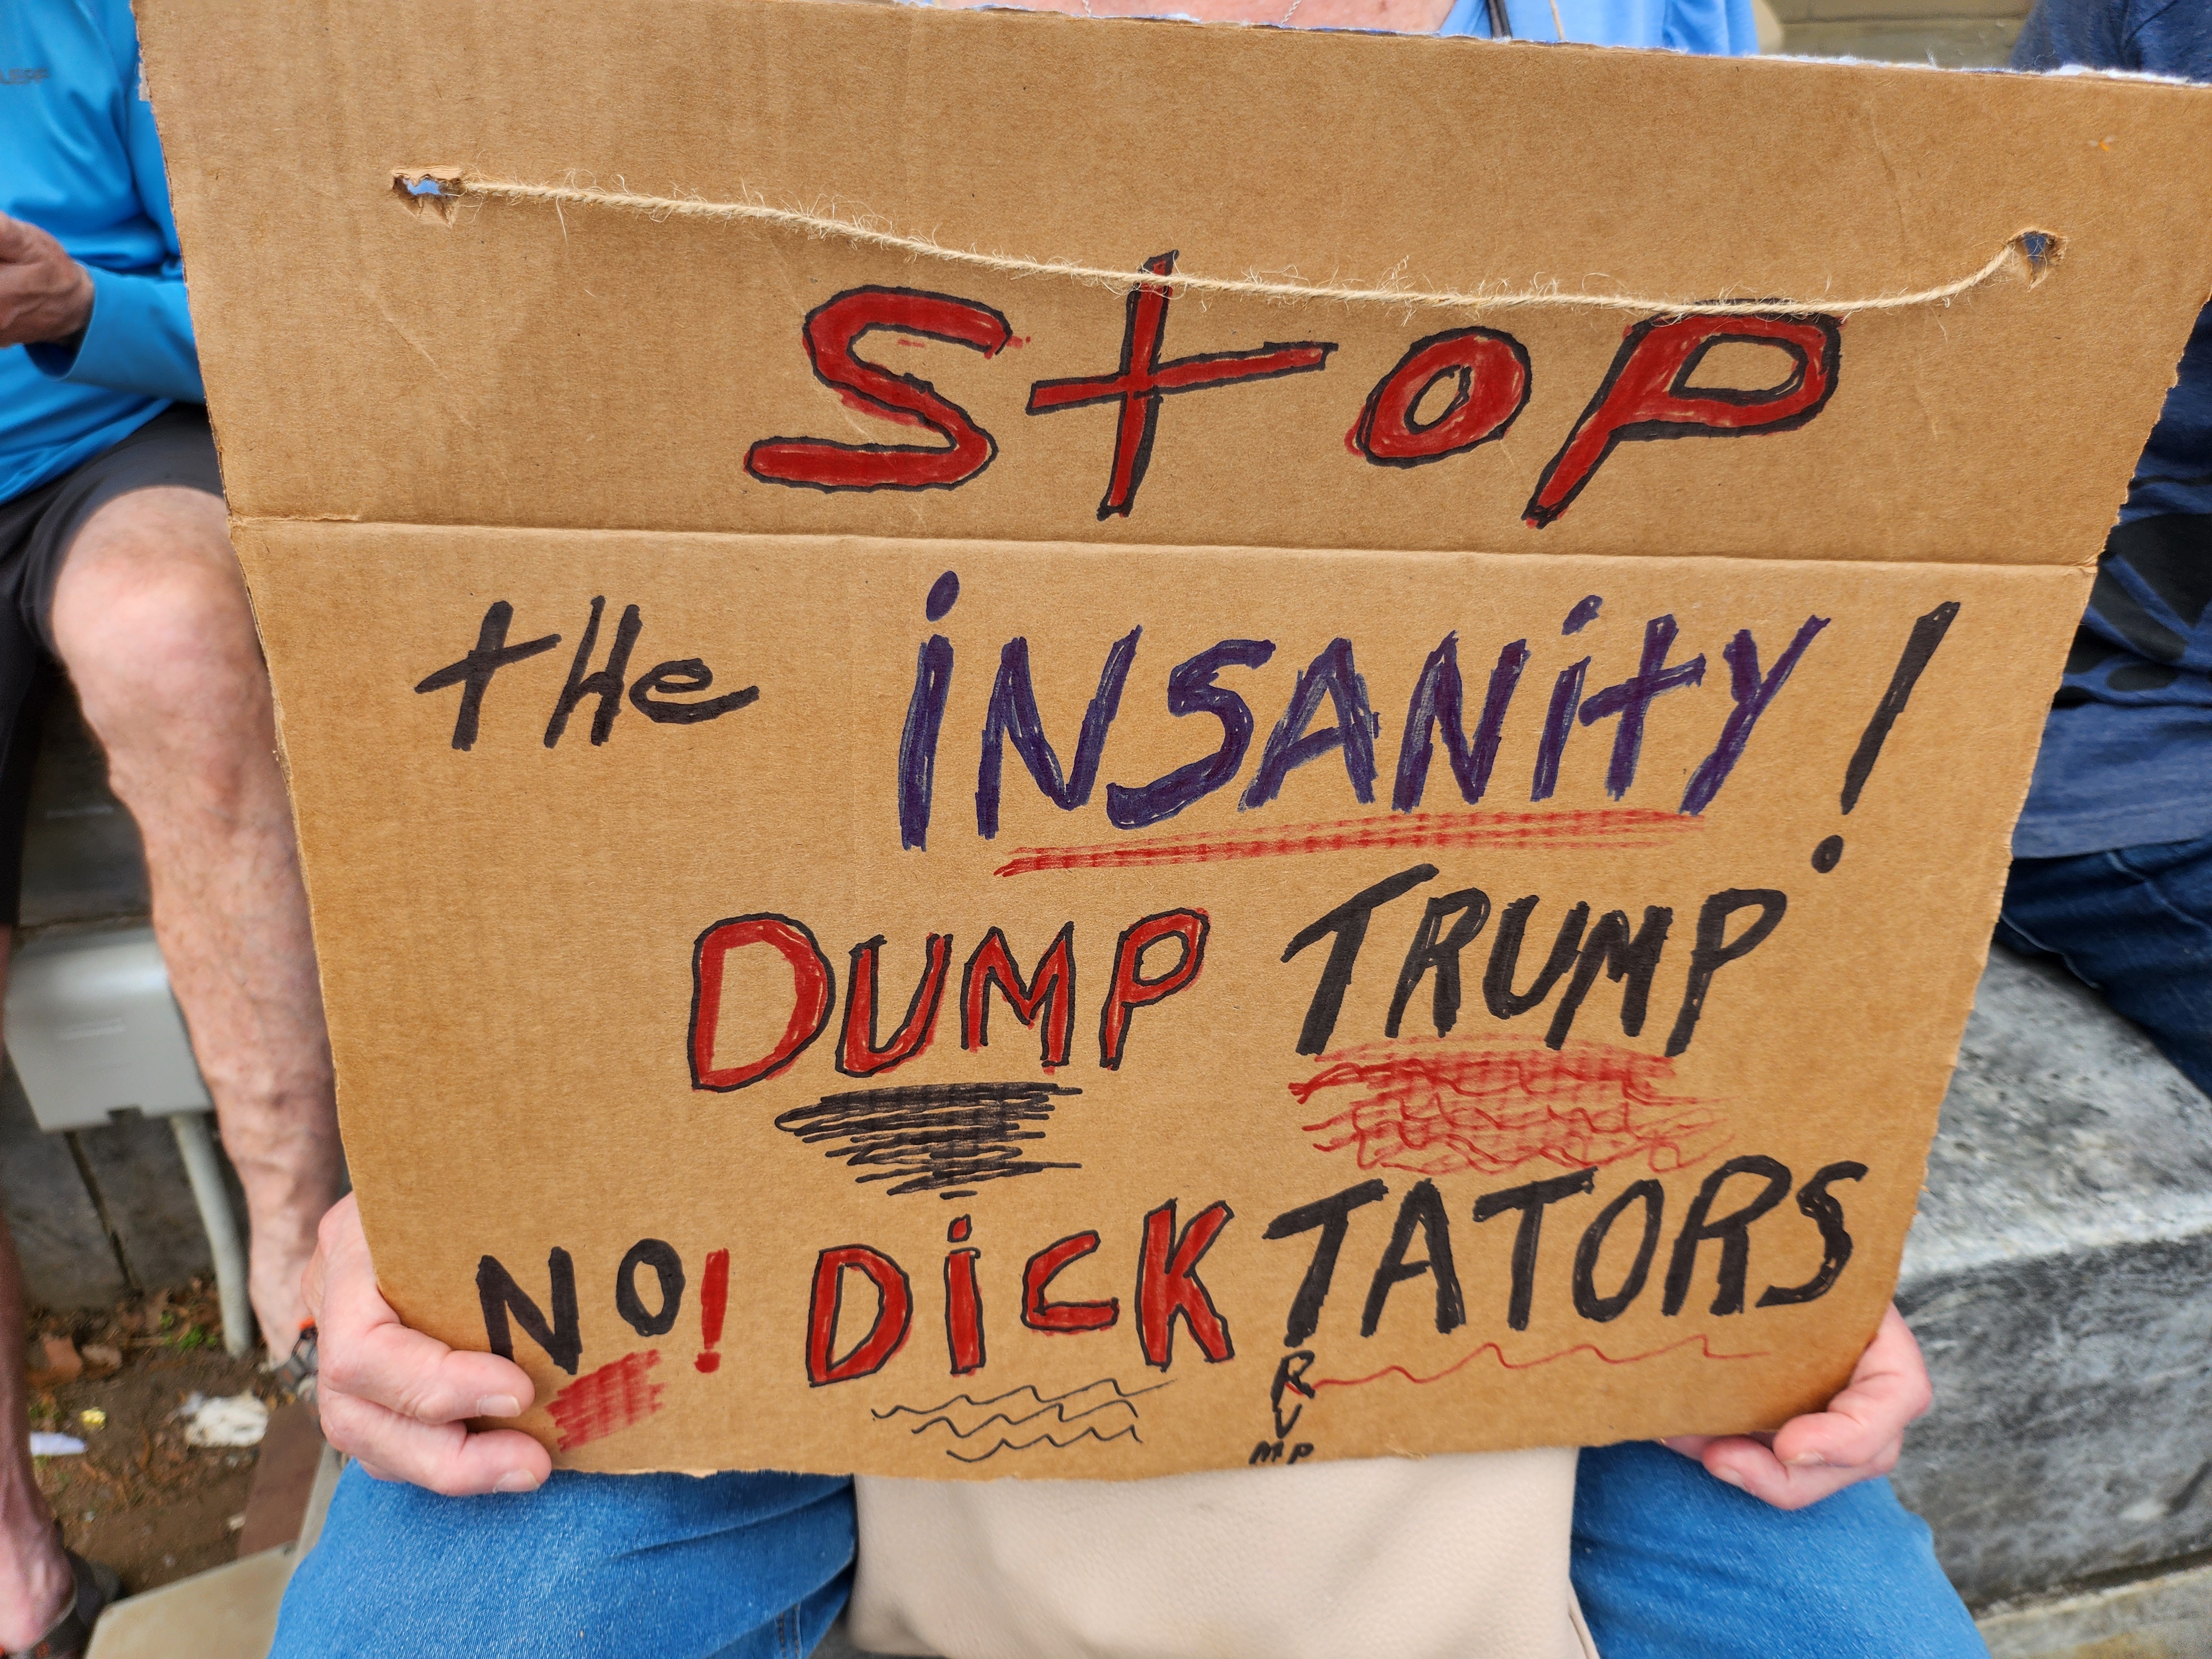 StOP
tHe iNSANity!
DUMP TRUMP
NO! DiCKTATORS
RUMP